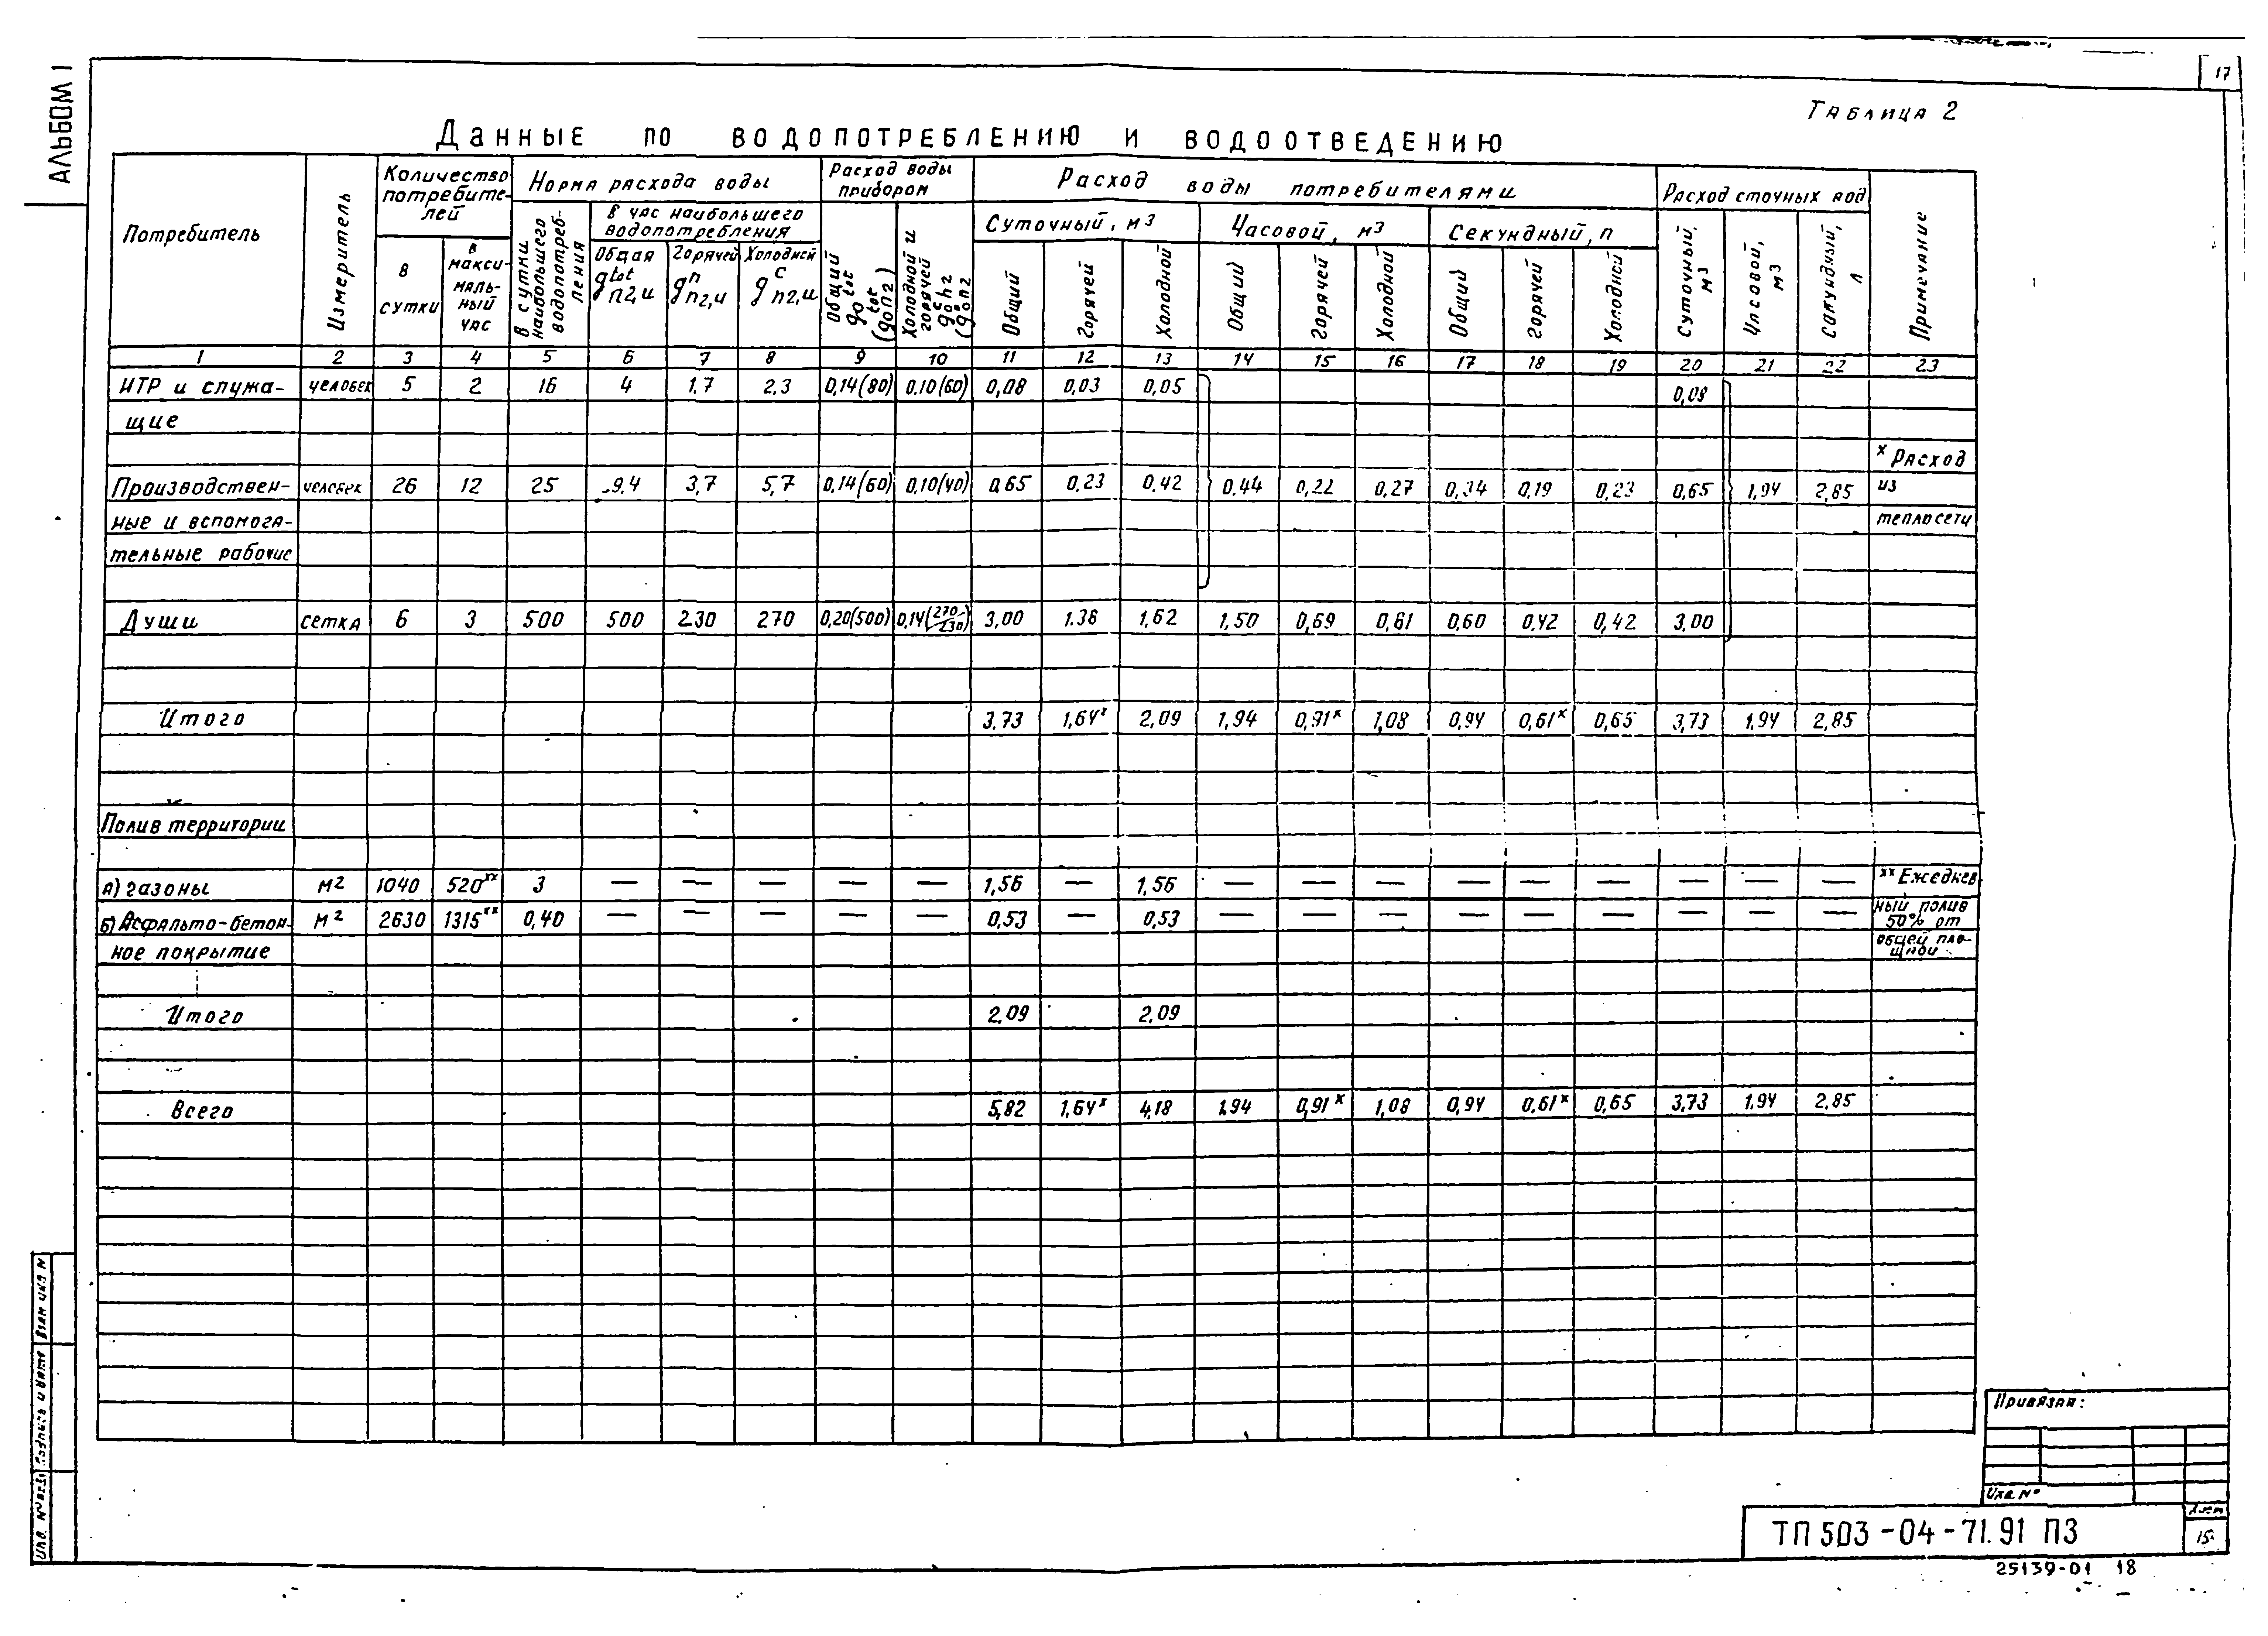 АЛЬБОМ 1
17
Таблица 2
Данные по водопотреблению и водоотведению
Потребитель
Измеритель
Количество потребите-
лей
В сутки
в макси-
маль-
ный
час
Норма расхода воды
в сутки наибольшего водопотреб-
ления
в час наибольшего
водопотребления
Общая
Горячей
Холодней
Расход воды
прибором
Общий
Холодной и
горячей
Расход воды потребителями
Суточный, м3
Часовой, м3
Секундный, л
Общий Горячей Холодной
Общий Горячей Холодной
Общий Горячей Холодной
Расход сточных вод
Суточный, м3
Часовой, м3
Секундный, л
Примечание
1 2 3 4 5 6 7 8 9 10 11 12 13 14 15 16 17 18 19 20 21 22 23
ИТР и служа- человек 5 2 16 4 1.7 2.3 0,14(80) 0.10(60) 0,08 0,03 0,05 0,08
щие
x Расход
Производствен- человек 26 12 25 9.4 3,7 5,7 0,14(60) 0,10(40) 0,65 0,23 0,42 0.44 0,22 0,27 0,34 0,19 0,23 0,65 1,94 2,85 из
ные и вспомога- теплосети
тельные рабочие
Души сетка 6 3 500 500 230 270 0,20(500) 0,14(270/230) 3,00 1.38 1,62 1,50 0,69 0,81 0,60 0.42 0,42 3,00
Итого 3,73 1,64x 2,09 1,94 0,91x 1,08 0,94 0,61x 0,65 3,73 1,94 2,85
Полив территории
а) газоны м2 1040 520xx 3 — — — — — 1,56 — 1,56 — — — — — — — — — xx Ежеднев-
б) Асфальто-бетон- м2 2630 1315xx 0,40 — — — — — 0,53 — 0,53 — — — — — — — — — ный полив
50% от
ное покрытие общей пло-
щади
Итого 2,09 2,09
Всего 5,82 1,64x 4,18 1,94 0,91x 1,08 0,94 0,61x 0,65 3,73 1,94 2,85
Привязан:
Инв. №
ТП 503-04-71.91 ПЗ
Лист
15
25139-01 18
Инв. № подл. Подпись и дата Взам. инв. №